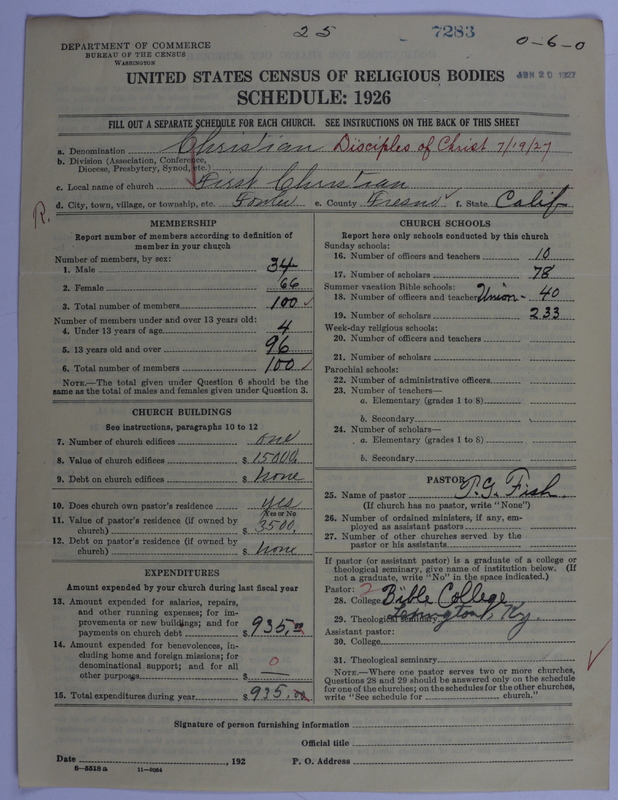 25
7283
0-6-0
DEPARTMENT OF COMMERCE
BUREAU OF THE CENSUS
WASHINGTON
UNITED STATES CENSUS OF RELIGIOUS BODIES
JUN 20 1927
SCHEDULE: 1926
FILL OUT A SEPARATE SCHEDULE FOR EACH CHURCH. SEE INSTRUCTIONS ON THE BACK OF THIS SHEET
a. Denomination Christian Disciples of Christ 7/19/27
b. Division (Association, Conference, Diocese, Presbytery, Synod, etc.)
c. Local name of church First Christian
d. City, town, village, or township, etc. Fowler e. County Fresno ✓ f. State Calif
R.
MEMBERSHIP
Report number of members according to definition of
member in your church
Number of members, by sex:
1. Male 34
2. Female 66
3. Total number of members 100 ✓
Number of members under and over 13 years old:
4. Under 13 years of age 4
5. 13 years old and over 96
6. Total number of members 100 ✓
NOTE.—The total given under Question 6 should be the
same as the total of males and females given under Question 3.
CHURCH BUILDINGS
See instructions, paragraphs 10 to 12
7. Number of church edifices one
8. Value of church edifices $ 15000
9. Debt on church edifices $ None
10. Does church own pastor's residence yes
(Yes or No)
11. Value of pastor's residence (if owned by
church) $ 3500
12. Debt on pastor's residence (if owned by
church) $ None
EXPENDITURES
Amount expended by your church during last fiscal year
13. Amount expended for salaries, repairs,
and other running expenses; for im-
provements or new buildings; and for
payments on church debt $ 935.00
14. Amount expended for benevolences, in-
cluding home and foreign missions; for
denominational support; and for all
other purposes $ 0 —
15. Total expenditures during year $ 935.00
CHURCH SCHOOLS
Report here only schools conducted by this church
Sunday schools:
16. Number of officers and teachers 10
17. Number of scholars 78
Summer vacation Bible schools:
18. Number of officers and teachers Union - 40
19. Number of scholars 233
Week-day religious schools:
20. Number of officers and teachers
21. Number of scholars
Parochial schools:
22. Number of administrative officers
23. Number of teachers—
a. Elementary (grades 1 to 8)
b. Secondary
24. Number of scholars—
a. Elementary (grades 1 to 8)
b. Secondary
PASTOR
25. Name of pastor Fish
(If church has no pastor, write "None")
26. Number of ordained ministers, if any, em-
ployed as assistant pastors
27. Number of other churches served by the
pastor or his assistants
If pastor (or assistant pastor) is a graduate of a college or
theological seminary, give name of institution below. (If
not a graduate, write "No" in the space indicated.)
Pastor: 2
28. College Bible College
29. Theological seminary Lexington, Ky.
Assistant pastor:
30. College
31. Theological seminary ✓
NOTE.—Where one pastor serves two or more churches,
Questions 28 and 29 should be answered only on the schedule
for one of the churches; on the schedules for the other churches,
write "See schedule for church."
Signature of person furnishing information
Official title
Date , 192 P. O. Address
6—5518 a 11—9064